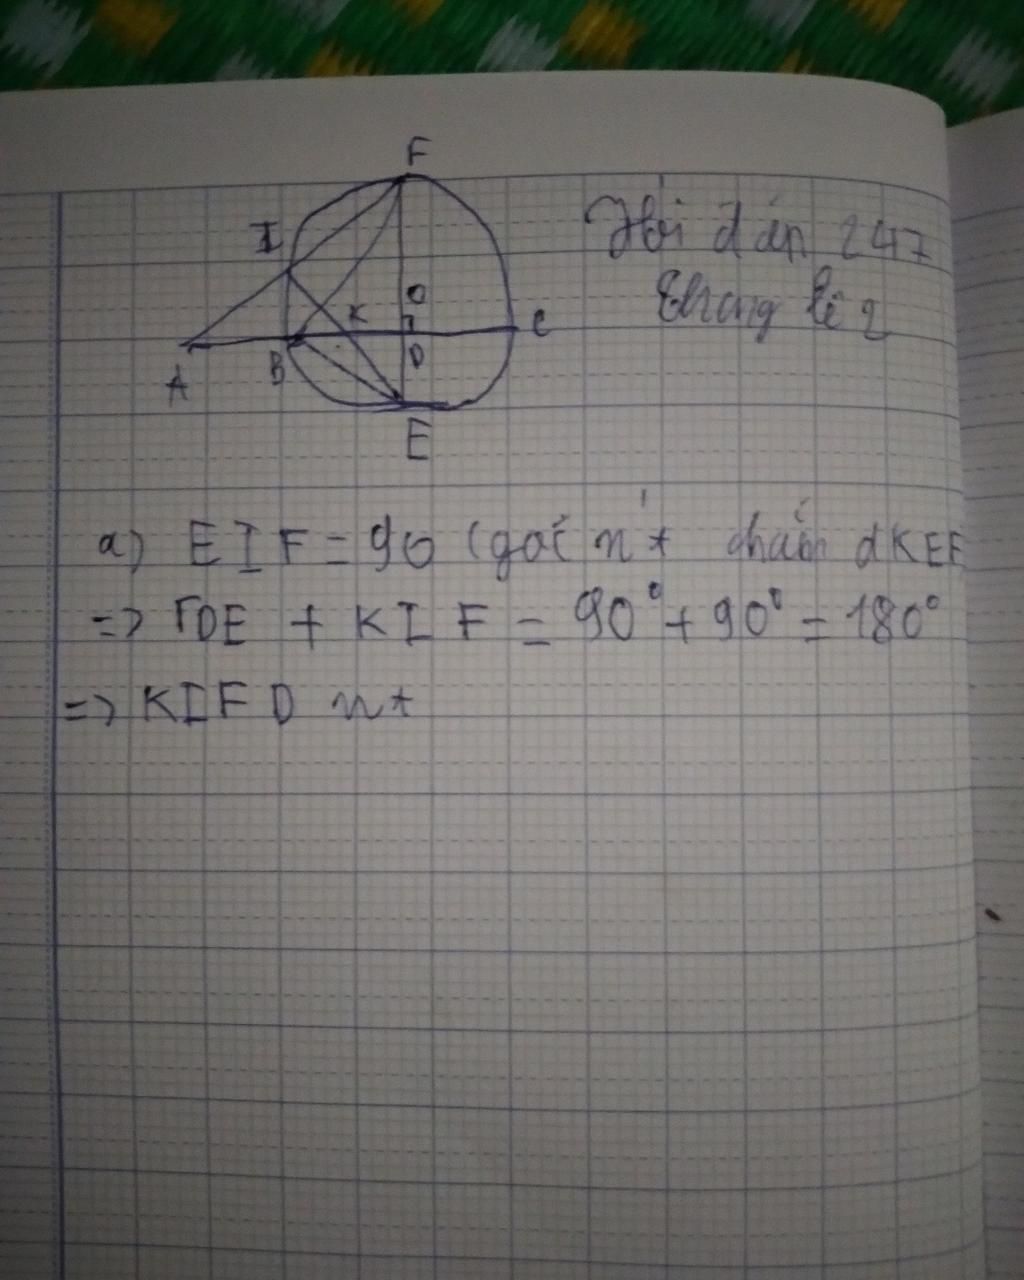 F
Hỏi đán 247
I
Thang lê 2
O
K
C
A
B
D
E
a) EIF = 90 (góc nt chắn dKEF
=> FDE + KIF = 90° + 90° = 180°
=> KIFD nt